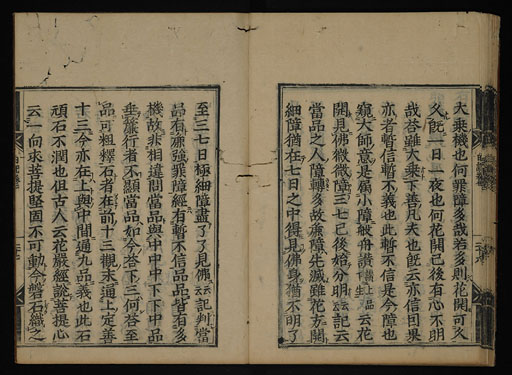 大乗機也何罪障多哉若多則花開可久
久既一日一夜也何花開已後有心不明
哉荅雖大乗下善凡夫也既云亦信因果
亦者暫信暫不義也此暫不信是今障也
窺大師意是属小障般舟讃 云花
開見佛微微障三七已後始分明 云記云
當品之人障轉多故麁障先滅雖花方開
細障猶在七日之中得見佛身猶不明了
至三七日極細障盡了了見佛 云記判當
品有麁強罪障經有暫不信品品皆有多
機故非相違問當品與中中下下中品
垂 行者不顯當品如今荅下三何荅至
品可粗釋石者在前十三觀末通上定善
十三今亦在上與中間通九品義也此石
頑石不潤也但古人云花嚴經說菩提心
云一向求菩提堅固不可動今磐石織之